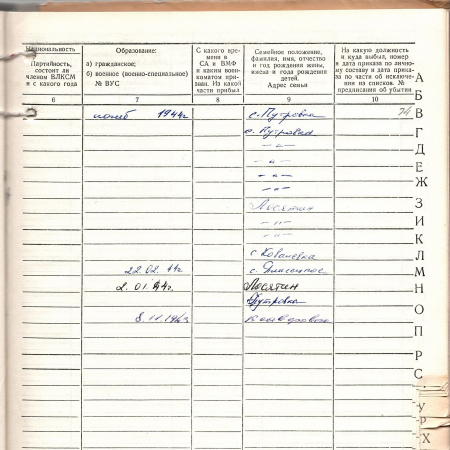 Национальность
Партийность,
состоит ли
членом ВЛКСМ
и с какого года
Образование:
а) гражданское;
б) военное (военно-специальное)
№ ВУС
С какого вре-
мени в
СА и ВМФ
и каким воен-
коматом при-
зван. Из какой
части прибыл
Семейное положение,
фамилия, имя, отчество
и год рождения жены,
имена и года рождения
детей.
Адрес семьи
На какую должность
и куда выбыл, номер
и дата приказа по лично-
му составу и дата прика-
за по части об исключе-
нии из списков. №
предписания об убытии
6 7 8 9 10
погиб 1944г с. Пугровка 74
с. Пугровка
-"-
-"-
-"-
-"-
Лосятин
-"-
-"-
с Ковалевка
22.02.44г с.
2.01.44г. Лосятин
Пугровка
8.11.1943
А
Б
В
Г
Д
Е
Ж
З
И
К
Л
М
Н
О
П
Р
С
У
Р
Х